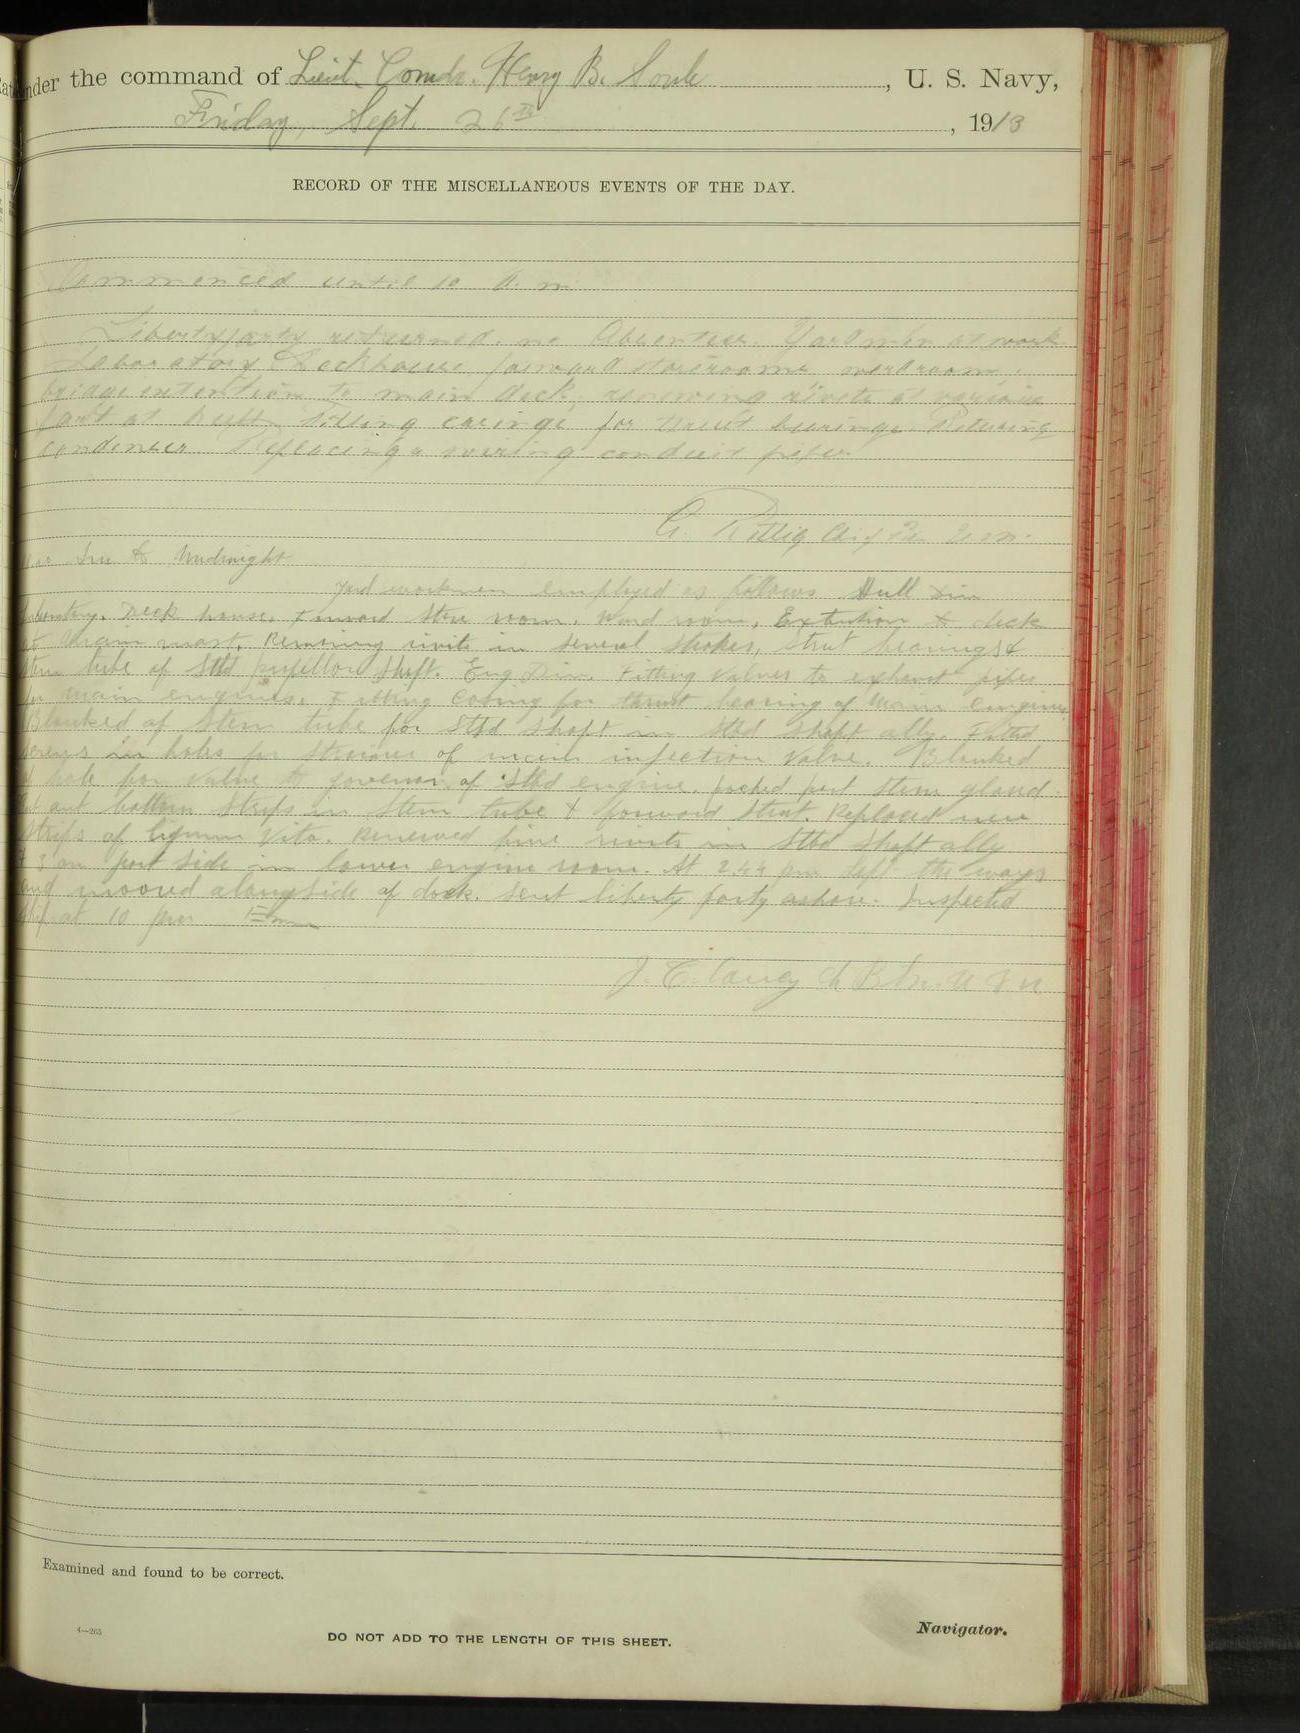 nder the command of Lieut. Comdr. Henry B. Soule, U. S. Navy,
Friday, Sept. 26th, 1913
RECORD OF THE MISCELLANEOUS EVENTS OF THE DAY.
Commenced until 10 A. m.
Liberty party returned. no Absentees. Yard men at work
Laboratory Deckhouse forward storerooms wardroom,
bridge extention to main deck, renewing rivets at various
part of hull, fitting casings for thrust bearings. Retubing
condenser. Replacing wiring conduit pipes.
Midnight
Yard workmen employed as follows Hull Div
Laboratory. Deck house. Forward Store room. Ward room, Extention to deck
main mast. Renewing rivits in several strakes, Strut bearings &
Stern tube of Stbd propellor Shaft. Eng Div. Fitting valves to exhaust pipes
for main engines. Fitting casing for thrust bearing of Main Engines
Blanked of Stern tube for Stbd Shaft in Stbd Shaft ally. Fitted
screws in holes for strainer of main injection Valve. Blanked
of hole for Valve to govenor of Stbd engine. packed port Stern gland.
Cut out bottom strips in Stern tube & forward Strut. Replaced new
strips of lignum Vita. Renewed five rivits in Stbd Shaft ally
& 3 on port side in lower engine room. At 2.44 pm left the ways
and moored alongside of dock. sent liberty party ashore. Inspected
ship at 10 pm
Examined and found to be correct.
4—265
DO NOT ADD TO THE LENGTH OF THIS SHEET.
Navigator.